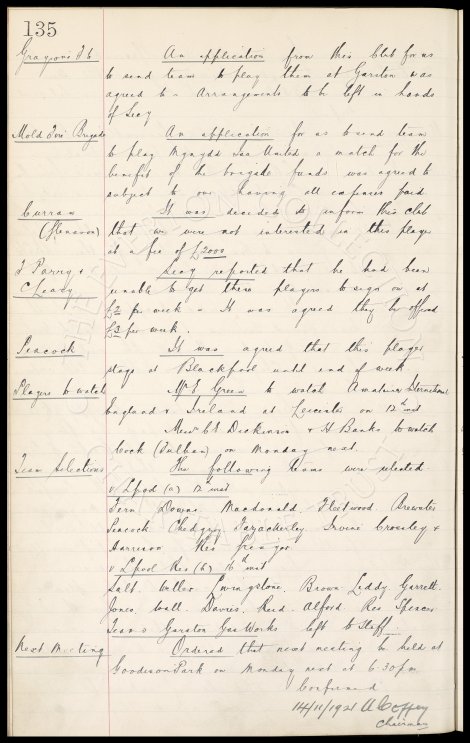 135
Grayson's F.C. An application from this Club for us
to send team to play them at Garston was
agreed to - Arrangements to be left in hands
of Secy
Mold Fire Brigade An application for us to send team
to play Mynydd Isa United a match for the
benefit of the brigade funds was agreed to
subject to our having all expenses paid
Curran It was decided to inform this club
(Menavon) that we were not interested in this player
at a fee of £2000
J Parry & Secy reported that he had been
C Leary unable to get these players to sign on at
per week - It was agreed they be offered
per week.
Peacock It was agreed that this player
stage at Blackpool until end of week
Players to watch Mr E Green to watch Amateur International
England v Ireland at Leicester on 12th inst
Messrs C S Dickinson & H Banks to watch
Cock (Fulham) on Monday next.
Team Selections The following teams were selected
v L'pool (a) 12th inst
Fern Downs Macdonald Fleetwood Brewster
Peacock Chedgzoy Fazackerley Irvine Crossley &
Harrison Res
v L'pool Res (h) inst
Salt. Weller Livingstone. Brown Leddy Garrett
Jones. Wall Davies. Reid Alford Res Spencer
Team v Garston Gas Works left to Staff.
Next Meeting Ordered that next meeting be held at
Goodison Park on Monday next at 6.30 pm
Confirmed
14/11/1921 A Coffey
Chairman